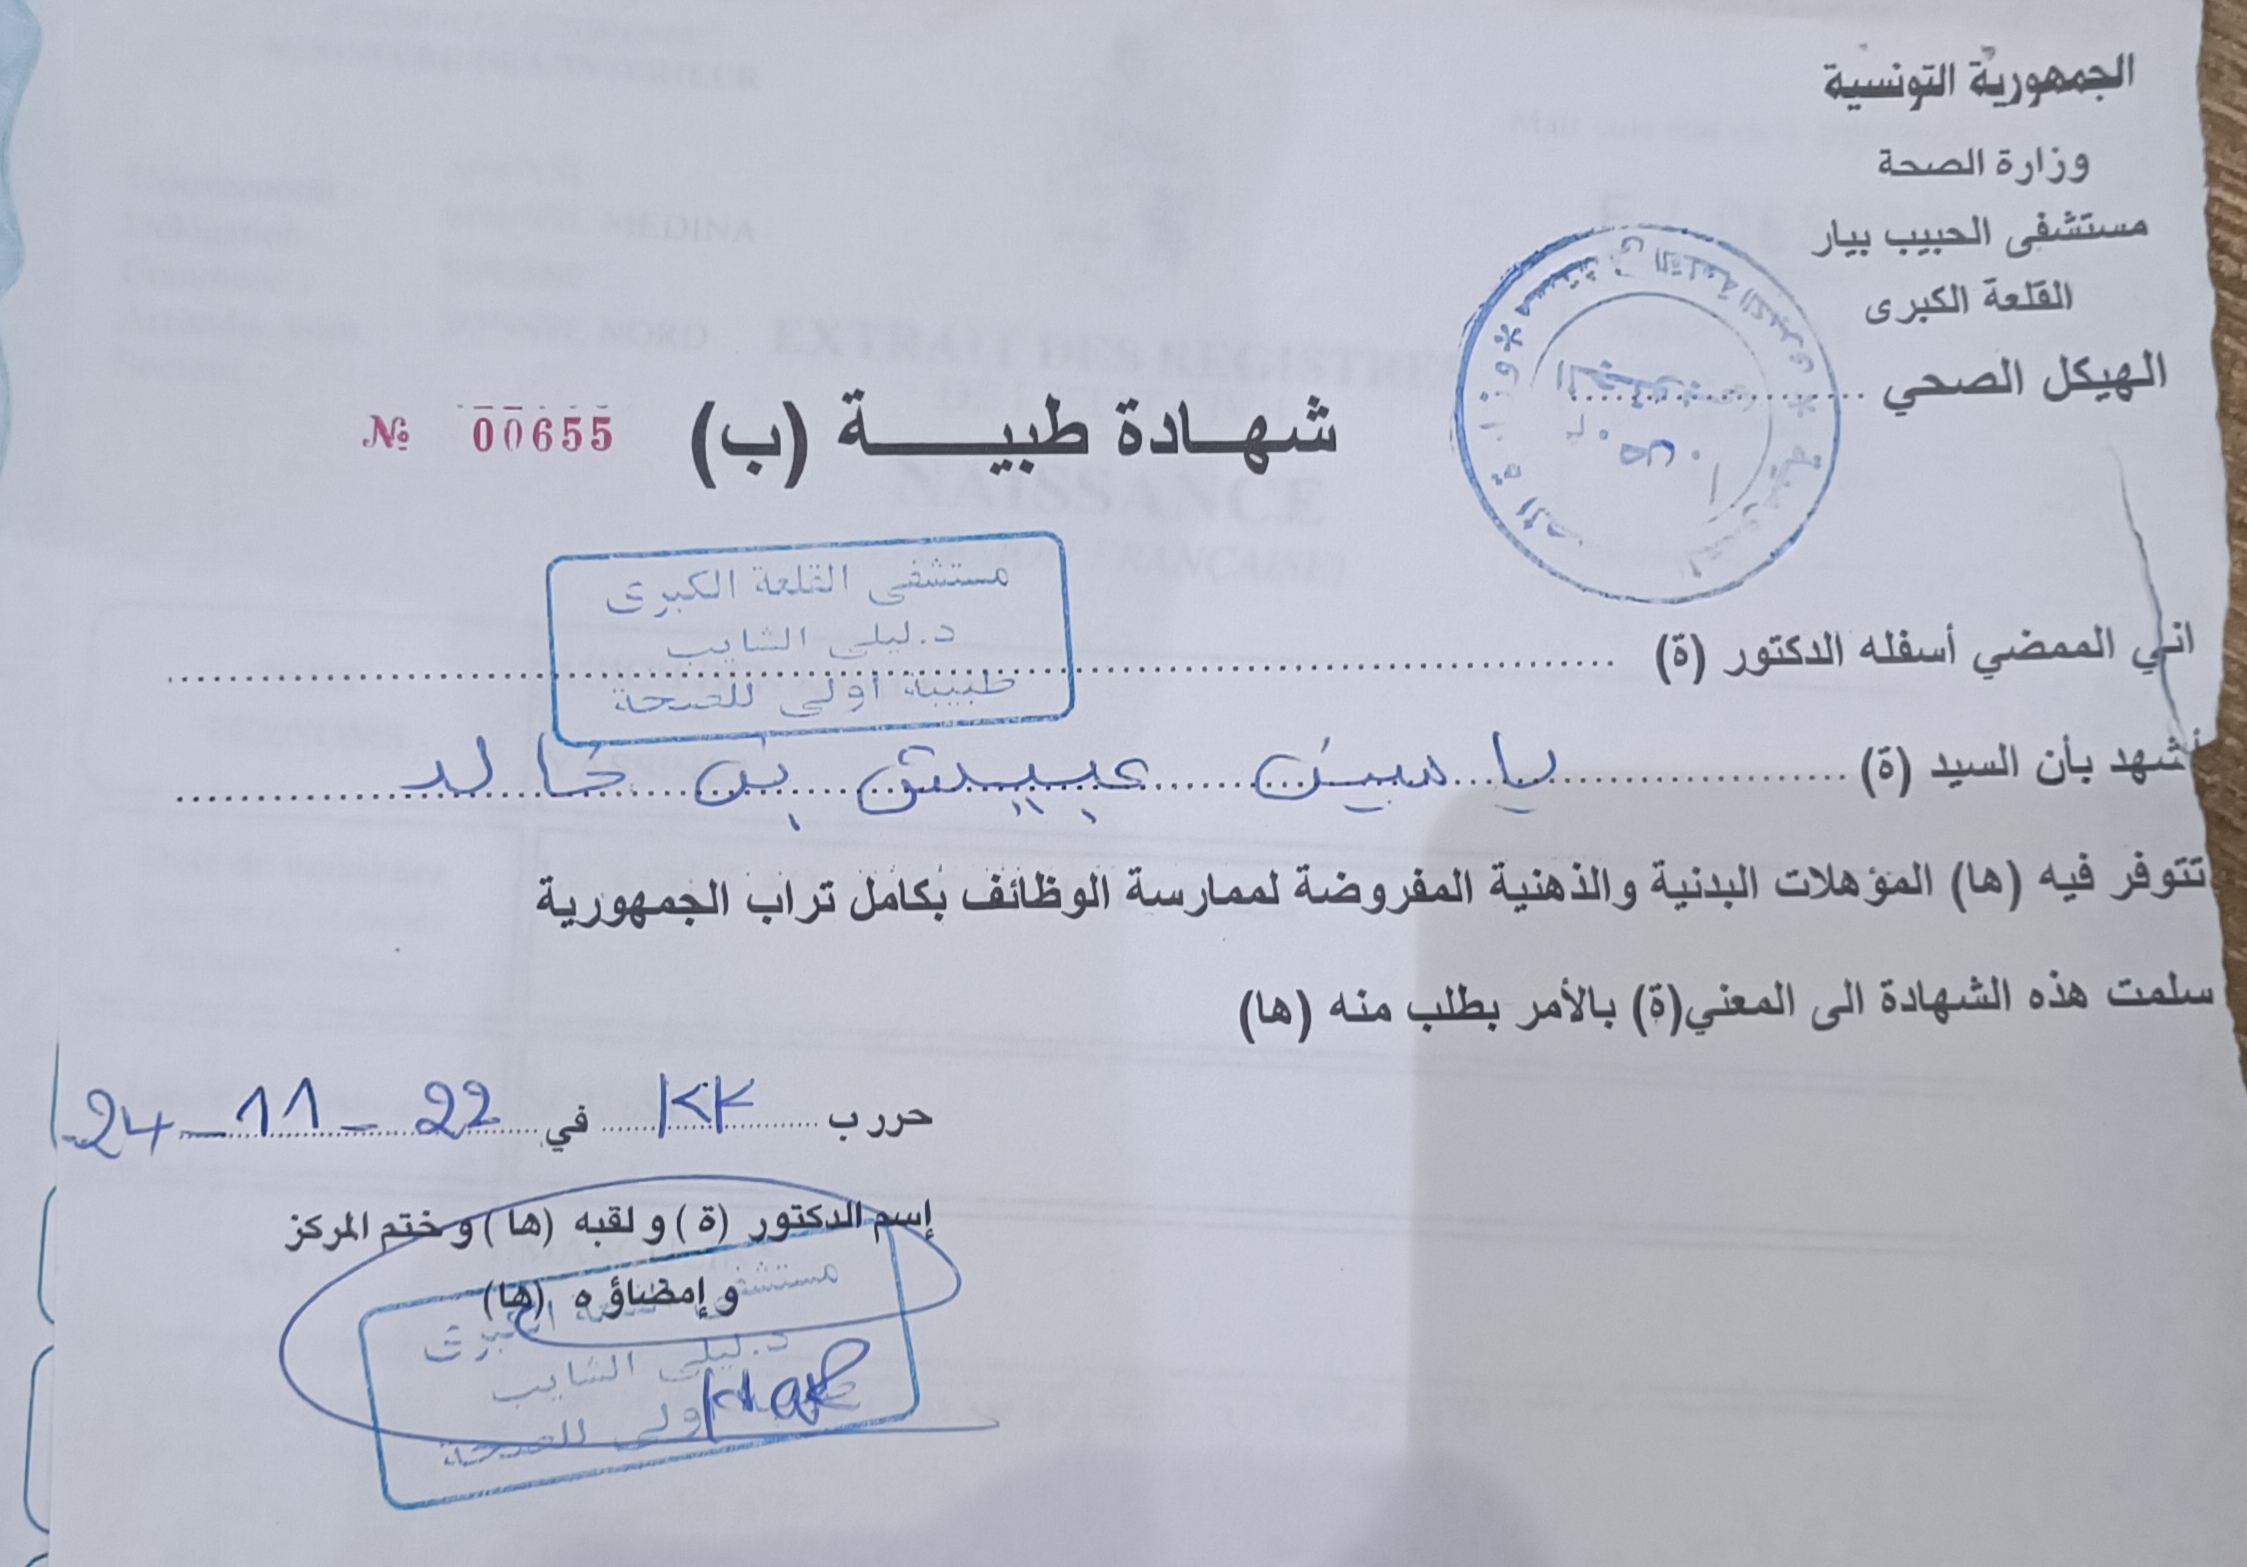 الجمهورية التونسية
وزارة الصحة
مستشفى الحبيب بيار
القلعة الكبرى
الهيكل الصحي
شهـادة طبيـــة (ب)
№ 00655
مستشفى القلعة الكبرى
د.ليلى الشايب
طبيبة أولى للصحة
اني الممضي أسفله الدكتور (ة)
أشهد بأن السيد (ة) ياسين عبيدش بن خالد
تتوفر فيه (ها) المؤهلات البدنية والذهنية المفروضة لممارسة الوظائف بكامل تراب الجمهورية
سلمت هذه الشهادة الى المعني(ة) بالأمر بطلب منه (ها)
حرر ب KK في 22 - 11 - 24
إسم الدكتور (ة) و لقبه (ها) و ختم المركز
و إمضاؤ ه (ها)
مستشفى القلعة الكبرى
د.ليلى الشايب
طبيبة أولى للصحة
EXTRAIT DES REGISTRES
NAISSANCE